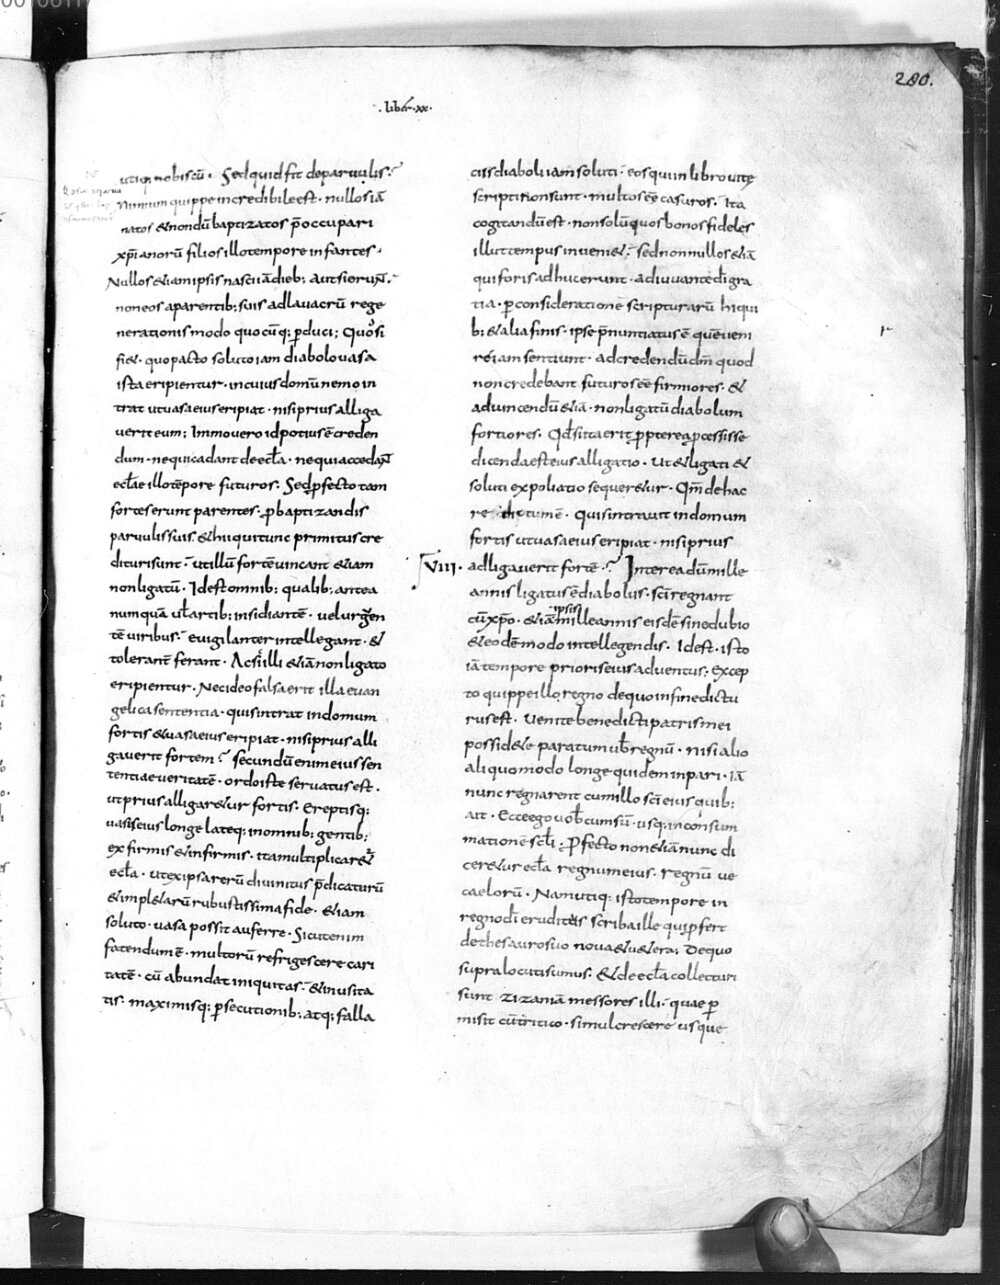 280.
.liber.xx.
utiq; nobiscū. Sed quid fit de paruulis?
Nimium quippe incredibile est. nullos iā
natos & nondū baptizatos p̄occupari
xp̄ianorū filios illo tempore infantes.
Nullos &iam ipsis nasci iā dieb; aut si erunt.
non eos a parentib; suis ad lauacrū rege
nerationis modo quocūq; pduci; Quod si
fi&. quo pacto soluto iam diabolo uasa
ista eripientur. in cuius domū nemo in
trat ut uasa eius eripiat. nisi prius alliga
uerit eum; Immo uero id potius ē creden
dum. nec qui cadant de eccła. nec qui accedant
eccłae illo tēpore futuros. Sed pfecto tam
fortes erunt parentes. p baptizandis
paruulis suis. & hi qui tunc primitus cre
dituri sunt. ut illū fortē uincant &iam
non ligatū. Id est omnib; qualib; antea
numquā uł artib; insidiantē. uel urgen
tē uiribus. & uigilanter intellegant. &
toleranter ferant. Ac sic illi &iā non ligato
eripientur. Nec ideo falsa erit illa euan
gelica sententia. quis intrat in domum
fortis & uasa eius eripiat. nisi prius alli
gauerit fortem? secundū enim eius sen
tentiae ueritatē. ordo iste seruatus est.
ut prius alligar&ur fortis. Ereptisq;
uasis eius longe lateq; in omnib; gentib;
ex firmis & infirmis. ita multiplicar&ur
eccła. ut ex ipsa rerū diuinitus p̄dicatarū
& impl&arū rubustissima fide. &iam
soluto. uasa possit auferre. Sicut enim
fatendum ē. multorū refrigescere cari
tatē. cū abundat iniquitas. & inusita
tis. maximisq; psecutionib; atq; falla
ciis diaboli iam soluti. eos qui in libro uitę
scripti non sunt. multos eē casuros. Ita
cogitandū est. non solū quos bonos fideles
illut tempus inueni&. sed nonnullos &iā
qui foris adhuc erunt. adiuuante dī gra
tia. p considerationē scripturarū. in qui
b; & alia & finis. ipse p̄nuntiatus ē quē ueni
re iam sentiunt. ad credendū dm̄ quod
non credebant futuros eē firmiores. &
ad uincendū &iā. non ligatū diabolum
fortiores. Qd̄ si ita erit pptereap̄cessisse
dicenda est eius alligatio. ut & ligati &
soluti expoliatio sequer&ur. Qm̄ de hac
re dictum ē. Quis intrauit in domum
fortis ut uasa eius eripiat. nisi prius
VIIII. adligauerit fortē? Interea dū mille
annis ligatus ē diabolus. sc̄i regnant
cū xp̄o. &iā ipsis mille annis eisdē sine dubio
& eodē modo intellegendis. Id est. isto
iā tempore prioris eius aduentus; Excep
to quippe illo regno de quo in fine dictu
rus est. Uenite benedicti patris mei
possid&e paratum ub̄ regnū. nisi alio
aliquo modo longe quidem inpari. iā
nunc regnarent cum illo sc̄i eius quib;
ait. Ecce ego uob̄cum sū. usq; in consum
mationē scłi; Pfecto non &iā nunc di
cer&ur eccła regnum eius. regnū ue
caelorū. Nam utiq; isto tempore in
regno dī eruditus scriba ille qui pfert
de thesauro suo noua & u&era; De quo
supra locuti sumus. & de eccła collecturi
sunt zizania messores illi. quae p
misit cū tritico. simul crescere usque